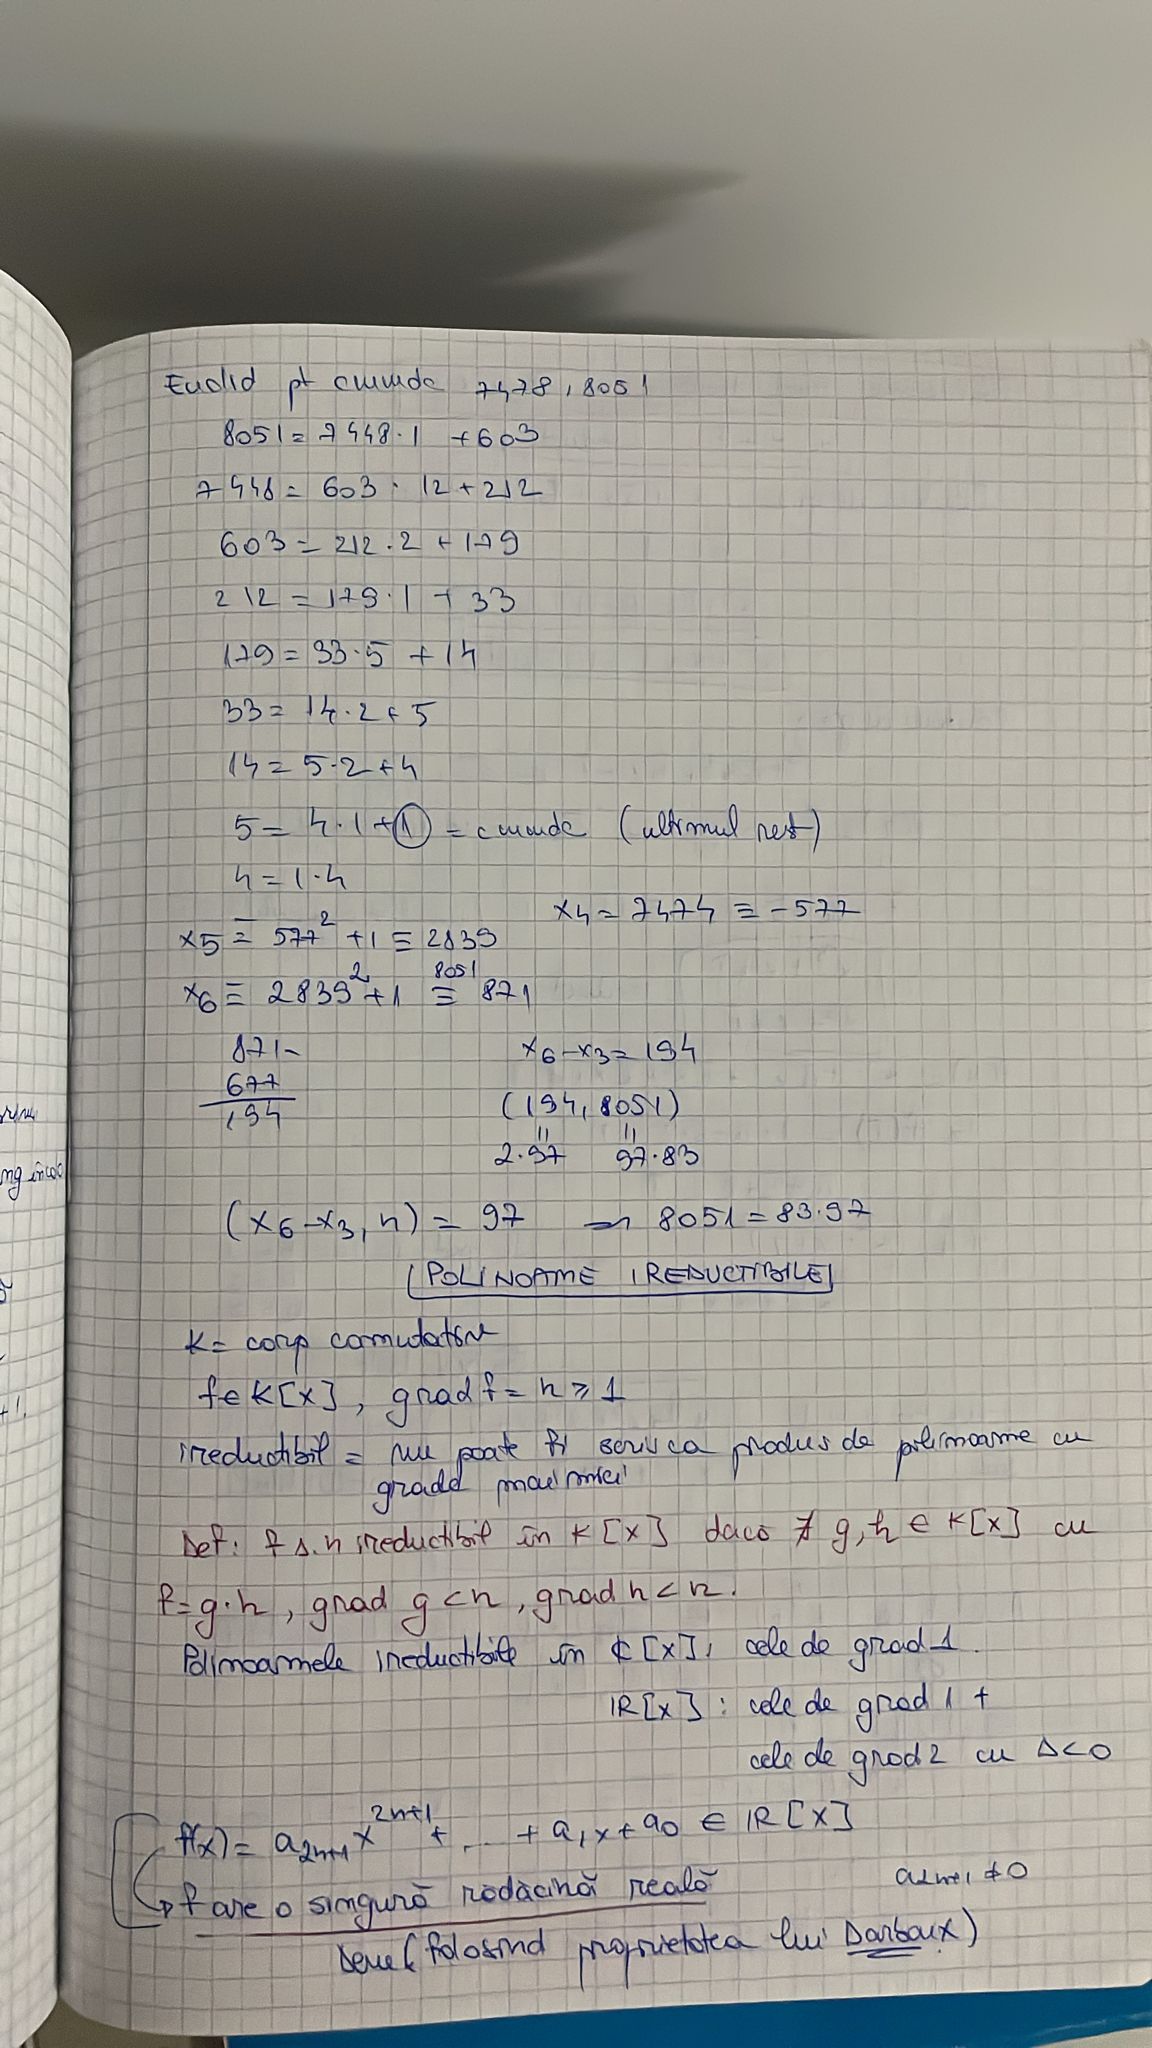 Euclid pt cmmdc 7478, 8051
8051 = 7448·1 + 603
7448 = 603 · 12 + 212
603 = 212·2 + 179
212 = 179·1 + 33
179 = 33·5 + 14
33 = 14·2 + 5
14 = 5·2 + 4
5 = 4·1 + 1 = cmmdc (ultimul rest)
4 = 1·4
x4 = 7474 ≡ -577
x5 ≡ 577² + 1 ≡ 2839
x6 ≡ 2839² + 1 ≡ 871
8051
871-
677
194
x6 - x3 = 194
(194, 8051)
" "
2·97 97·83
(x6 - x3, n) = 97 ⇒ 8051 = 83·97
POLINOAME IREDUCTIBILE
K = corp comutativ
f ∈ K[x], grad f = n ≥ 1
ireductibil = nu poate fi scris ca produs de polinoame cu
grade mai mici
Def: f s.n ireductibil în K[x] dacă ∄ g, h ∈ K[x] cu
f = g·h, grad g < n, grad h < n.
Polinoamele ireductibile în ℂ[x]: cele de grad 1.
ℝ[x]: cele de grad 1 +
cele de grad 2 cu Δ<0
f(x) = a2n+1 x^2n+1 + ... + a1x + a0 ∈ ℝ[x]
a2n+1 ≠ 0
f are o singură rădăcină reală
Dem (folosind proprietatea lui Darboux)